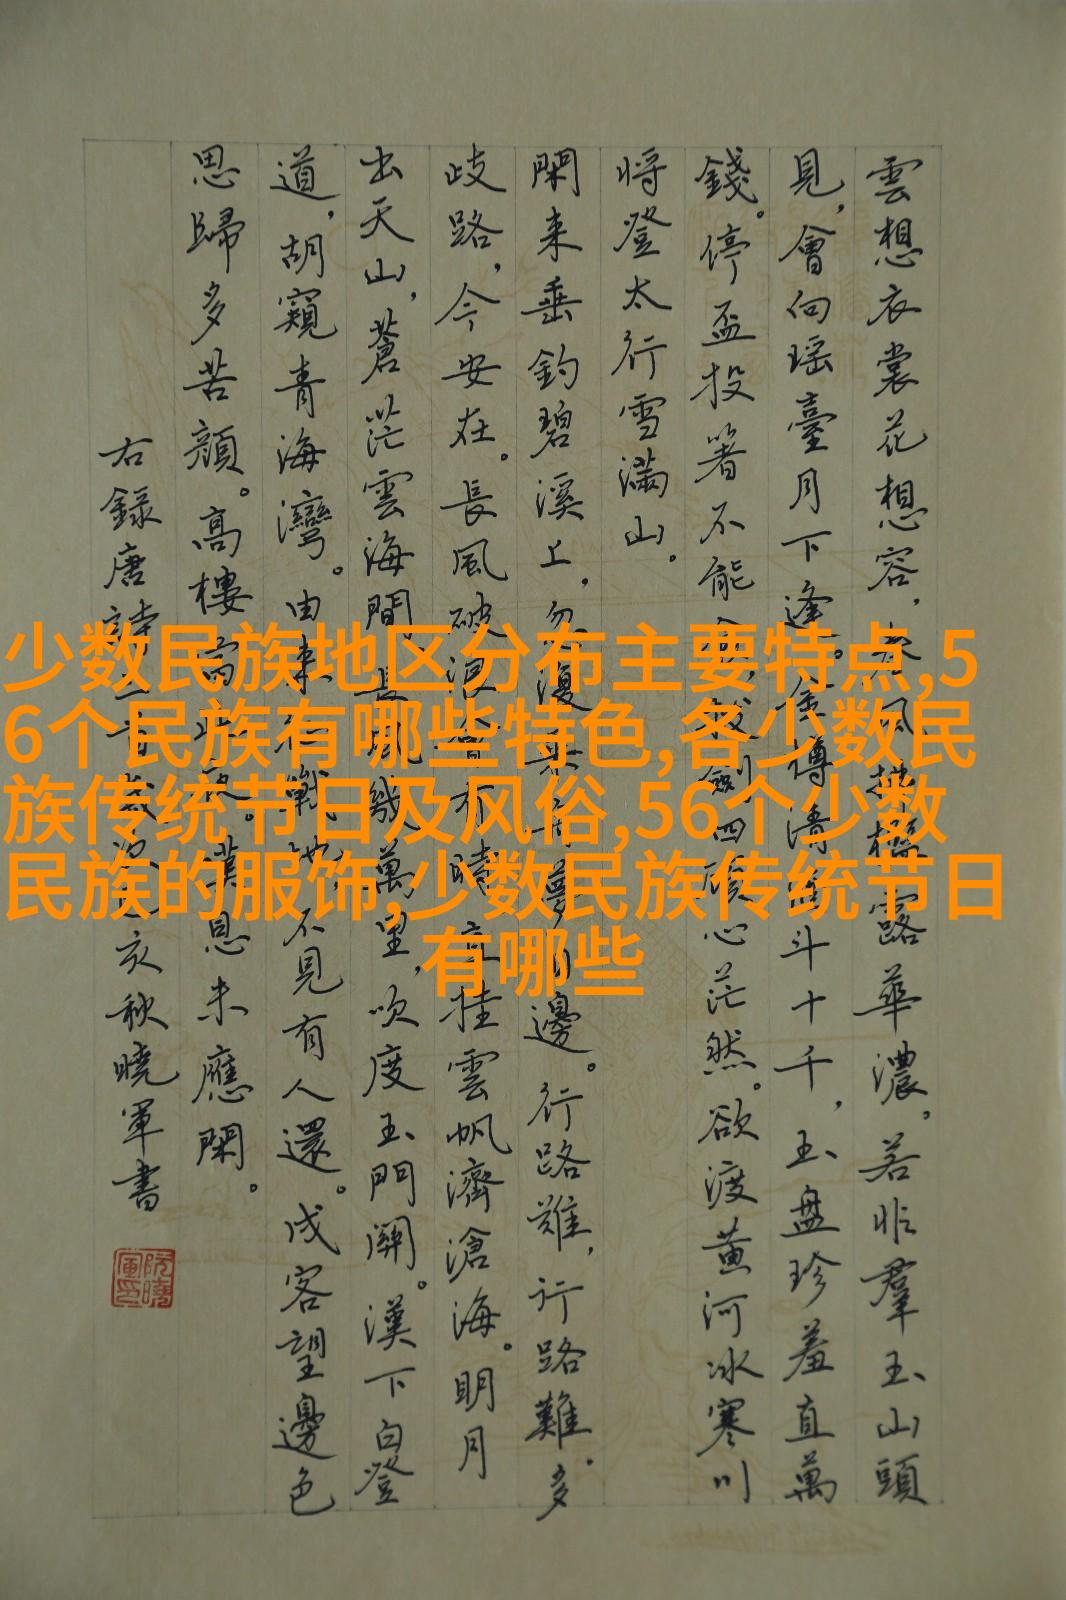 雲想衣裳花想容，春風拂檻露華濃。若非羣玉山頭
見，會向瑶臺月下逢。金樽清酒斗十千，玉盤珍羞直萬
錢。停盃投箸不能食，拔劍四顧心茫然。欲渡黄河冰寒川
將登太行雪滿山。
閑来垂釣碧溪上，忽復乘舟夢日邊。行路難，行路難。多
歧路，今安在。長風破浪會有時，直挂雲帆濟滄海。明月
出天山，蒼茫雲海間。長風幾萬里，吹度玉門關。漢下白登
道，胡窺青海灣。由來征戰地，不見有人還。戍客望邊色
思歸多苦顔。高樓當此夜。歎息未應閑。
右録唐詩三首歲次己亥秋曉軍書
阮曉軍印
少数民族地区分布主要特点,5
6个民族有哪些特色,各少数民
族传统节日及风俗,56个少数
民族的服饰,少数民族传统节日
有哪些